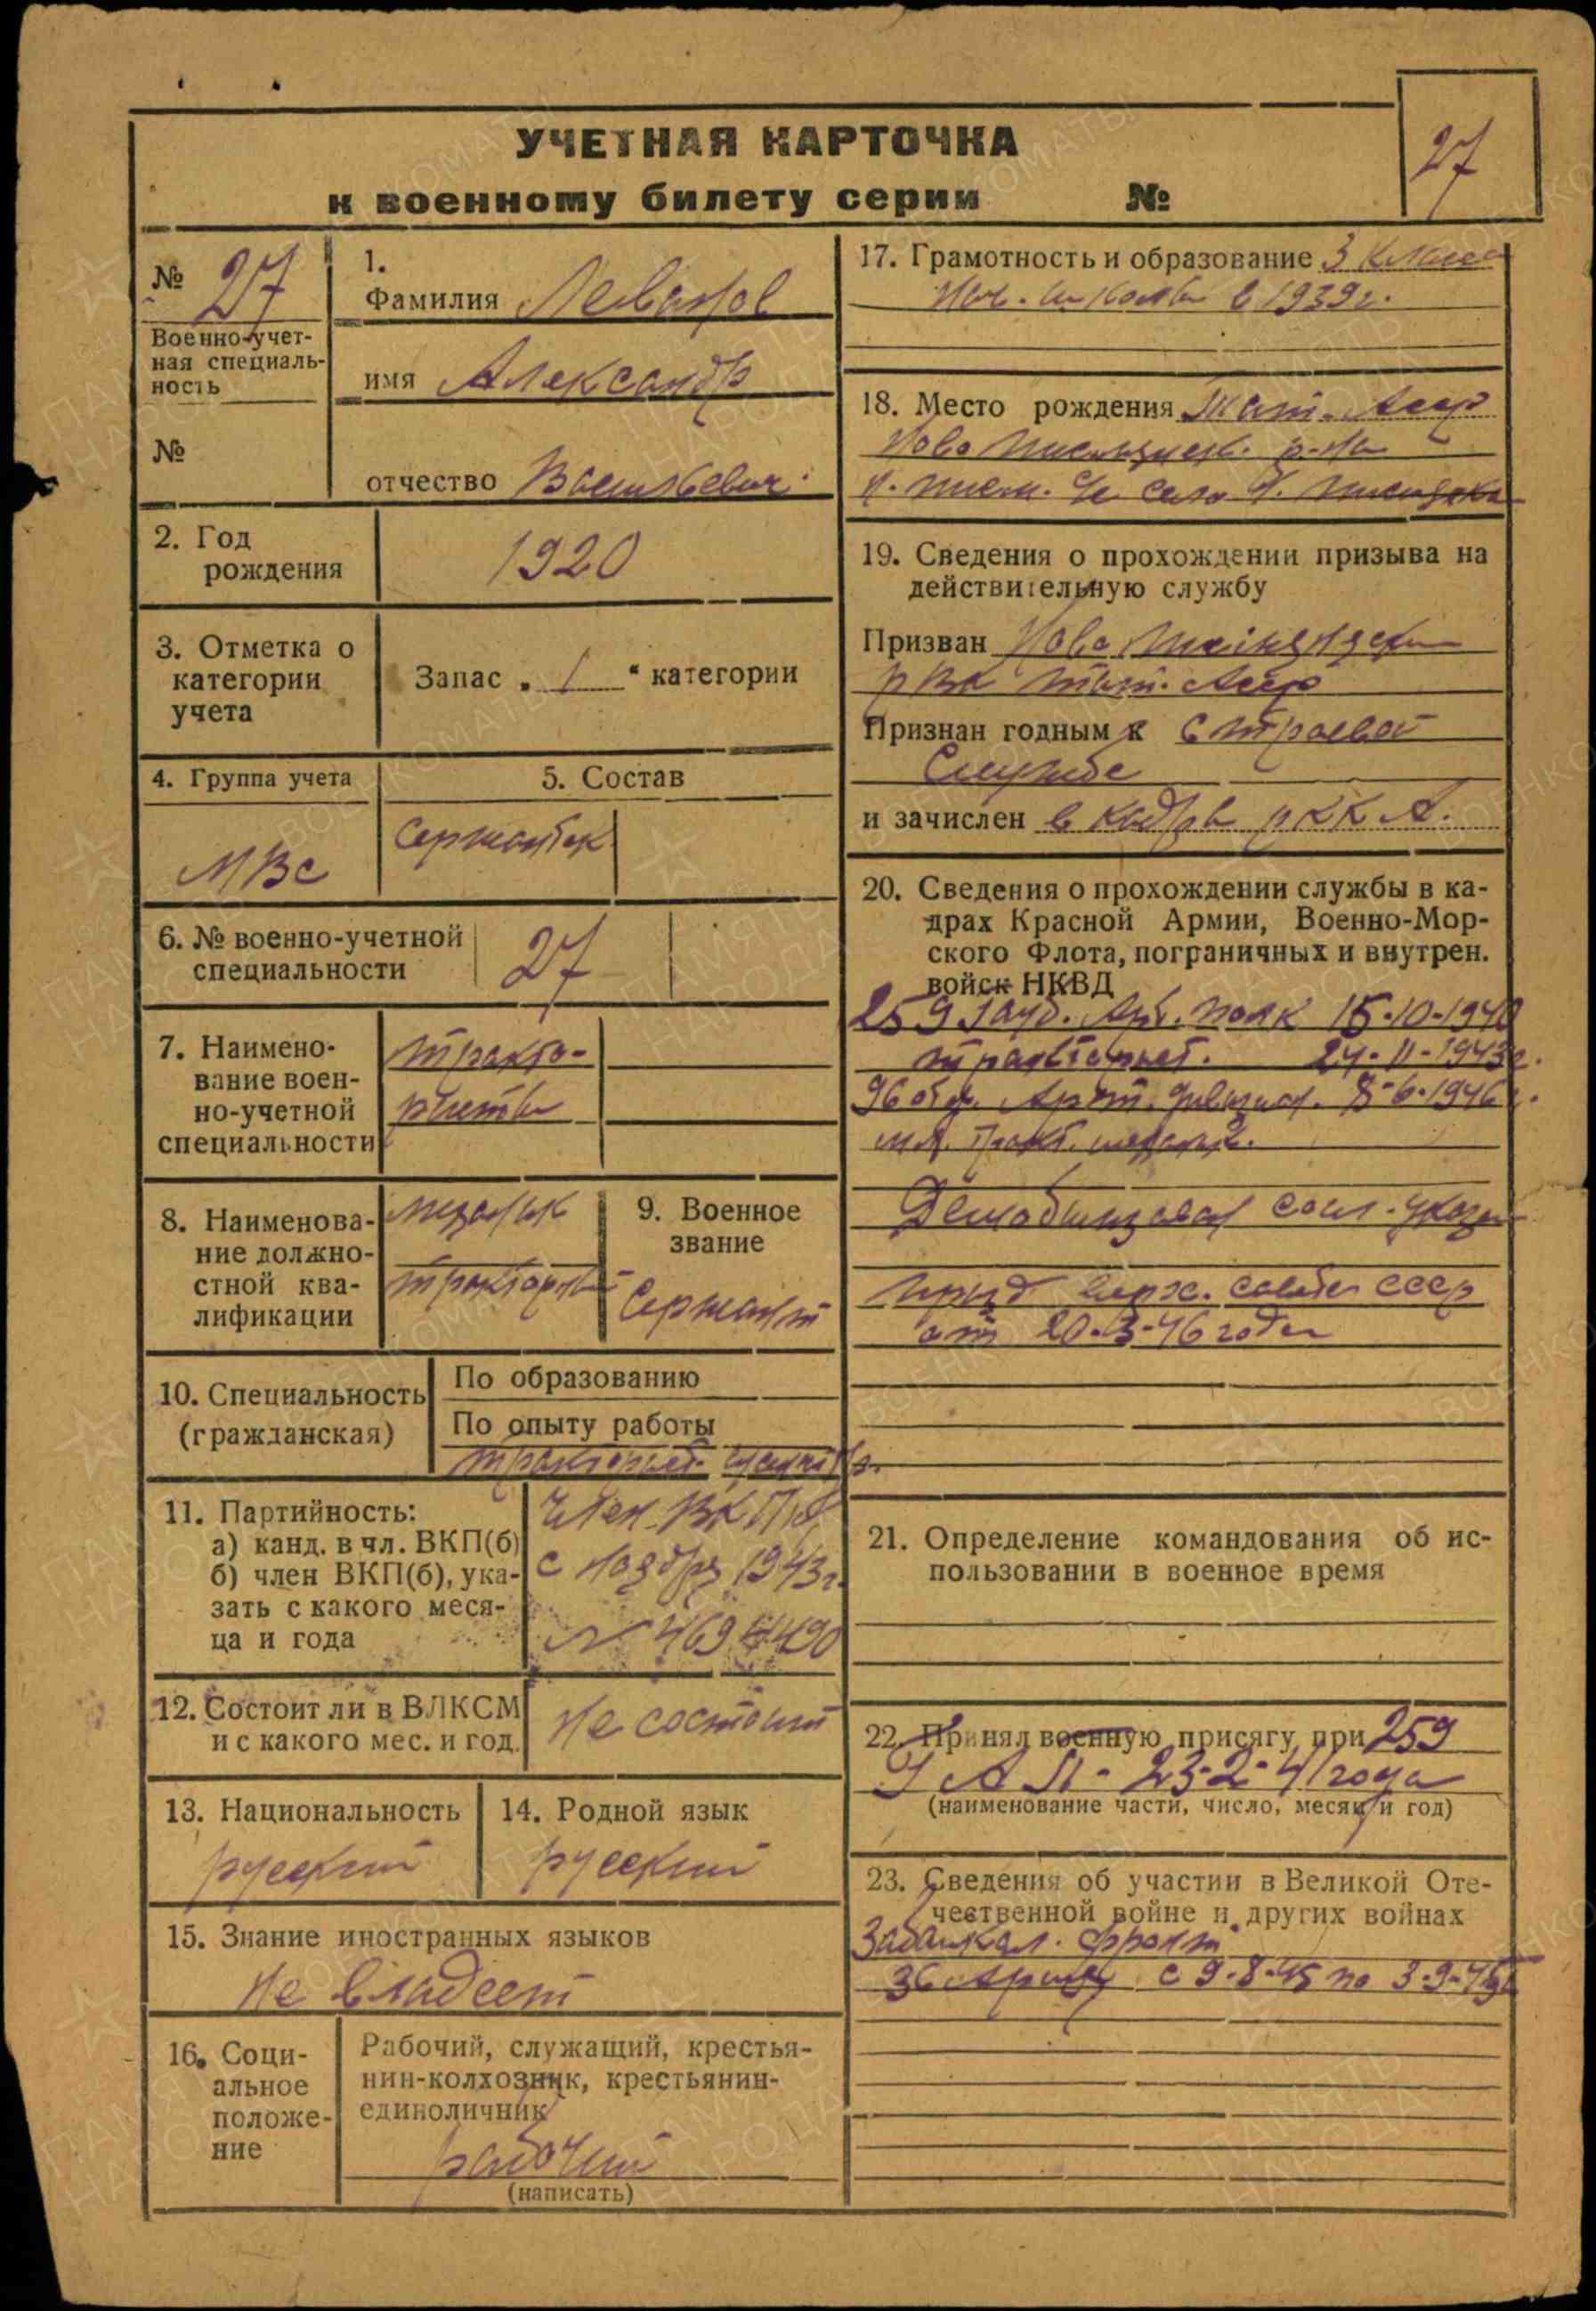 УЧЕТНАЯ КАРТОЧКА
к военному билету серии №
27
№ 27
Военно-учет-
ная специаль-
ность
№
1.
Фамилия Леванов
имя Александр
отчество Васильевич
2. Год
рождения
1920
3. Отметка о
категории
учета
Запас „ 1 “ категории
4. Группа учета
МВС
5. Состав
сержантск
6. № военно-учетной
специальности
27
7. Наимено-
вание воен-
но-учетной
специальности
тракто-
ристы
8. Наименова-
ние должно-
стной ква-
лификации
механик
9. Военное
звание
Сержант
10. Специальность
(гражданская)
По образованию
По опыту работы
тракторист
11. Партийность:
а) канд. в чл. ВКП(б)
б) член ВКП(б), ука-
зать с какого меся-
ца и года
член ВКП(б)
с ноября 1943г.
12. Состоит ли в ВЛКСМ
и с какого мес. и год.
не состоит
13. Национальность
русский
14. Родной язык
русский
15. Знание иностранных языков
не владеет
16. Соци-
альное
положе-
ние
Рабочий, служащий, крестья-
нин-колхозник, крестьянин-
единоличник
рабочий
(написать)
17. Грамотность и образование 3 класса
нач. школы в 1939г.
18. Место рождения Тат. Асср
Ново р-на
село
19. Сведения о прохождении призыва на
действительную службу
Призван Ново
рвк тат. Асср
Признан годным к строевой
службе
и зачислен в кадры РККА.
20. Сведения о прохождении службы в ка-
драх Красной Армии, Военно-Мор-
ского Флота, пограничных и внутрен.
войск НКВД
259 гауб. Арт. полк 15-10-1940
тракторист. 24-11-1943г.
96 Арт. дивизион. 8-6-1946г.
Демобилизован согл. указа
през верх. совета СССР
от 20-3-46 года
21. Определение командования об ис-
пользовании в военное время
22. Принял военную присягу при 259
ГАП - 23-2-41 года
(наименование части, число, месяц и год)
23. Сведения об участии в Великой Оте-
чественной войне и других войнах
Забайкал. фронт
36 Армия с 9-8-45 по 3-9-45г